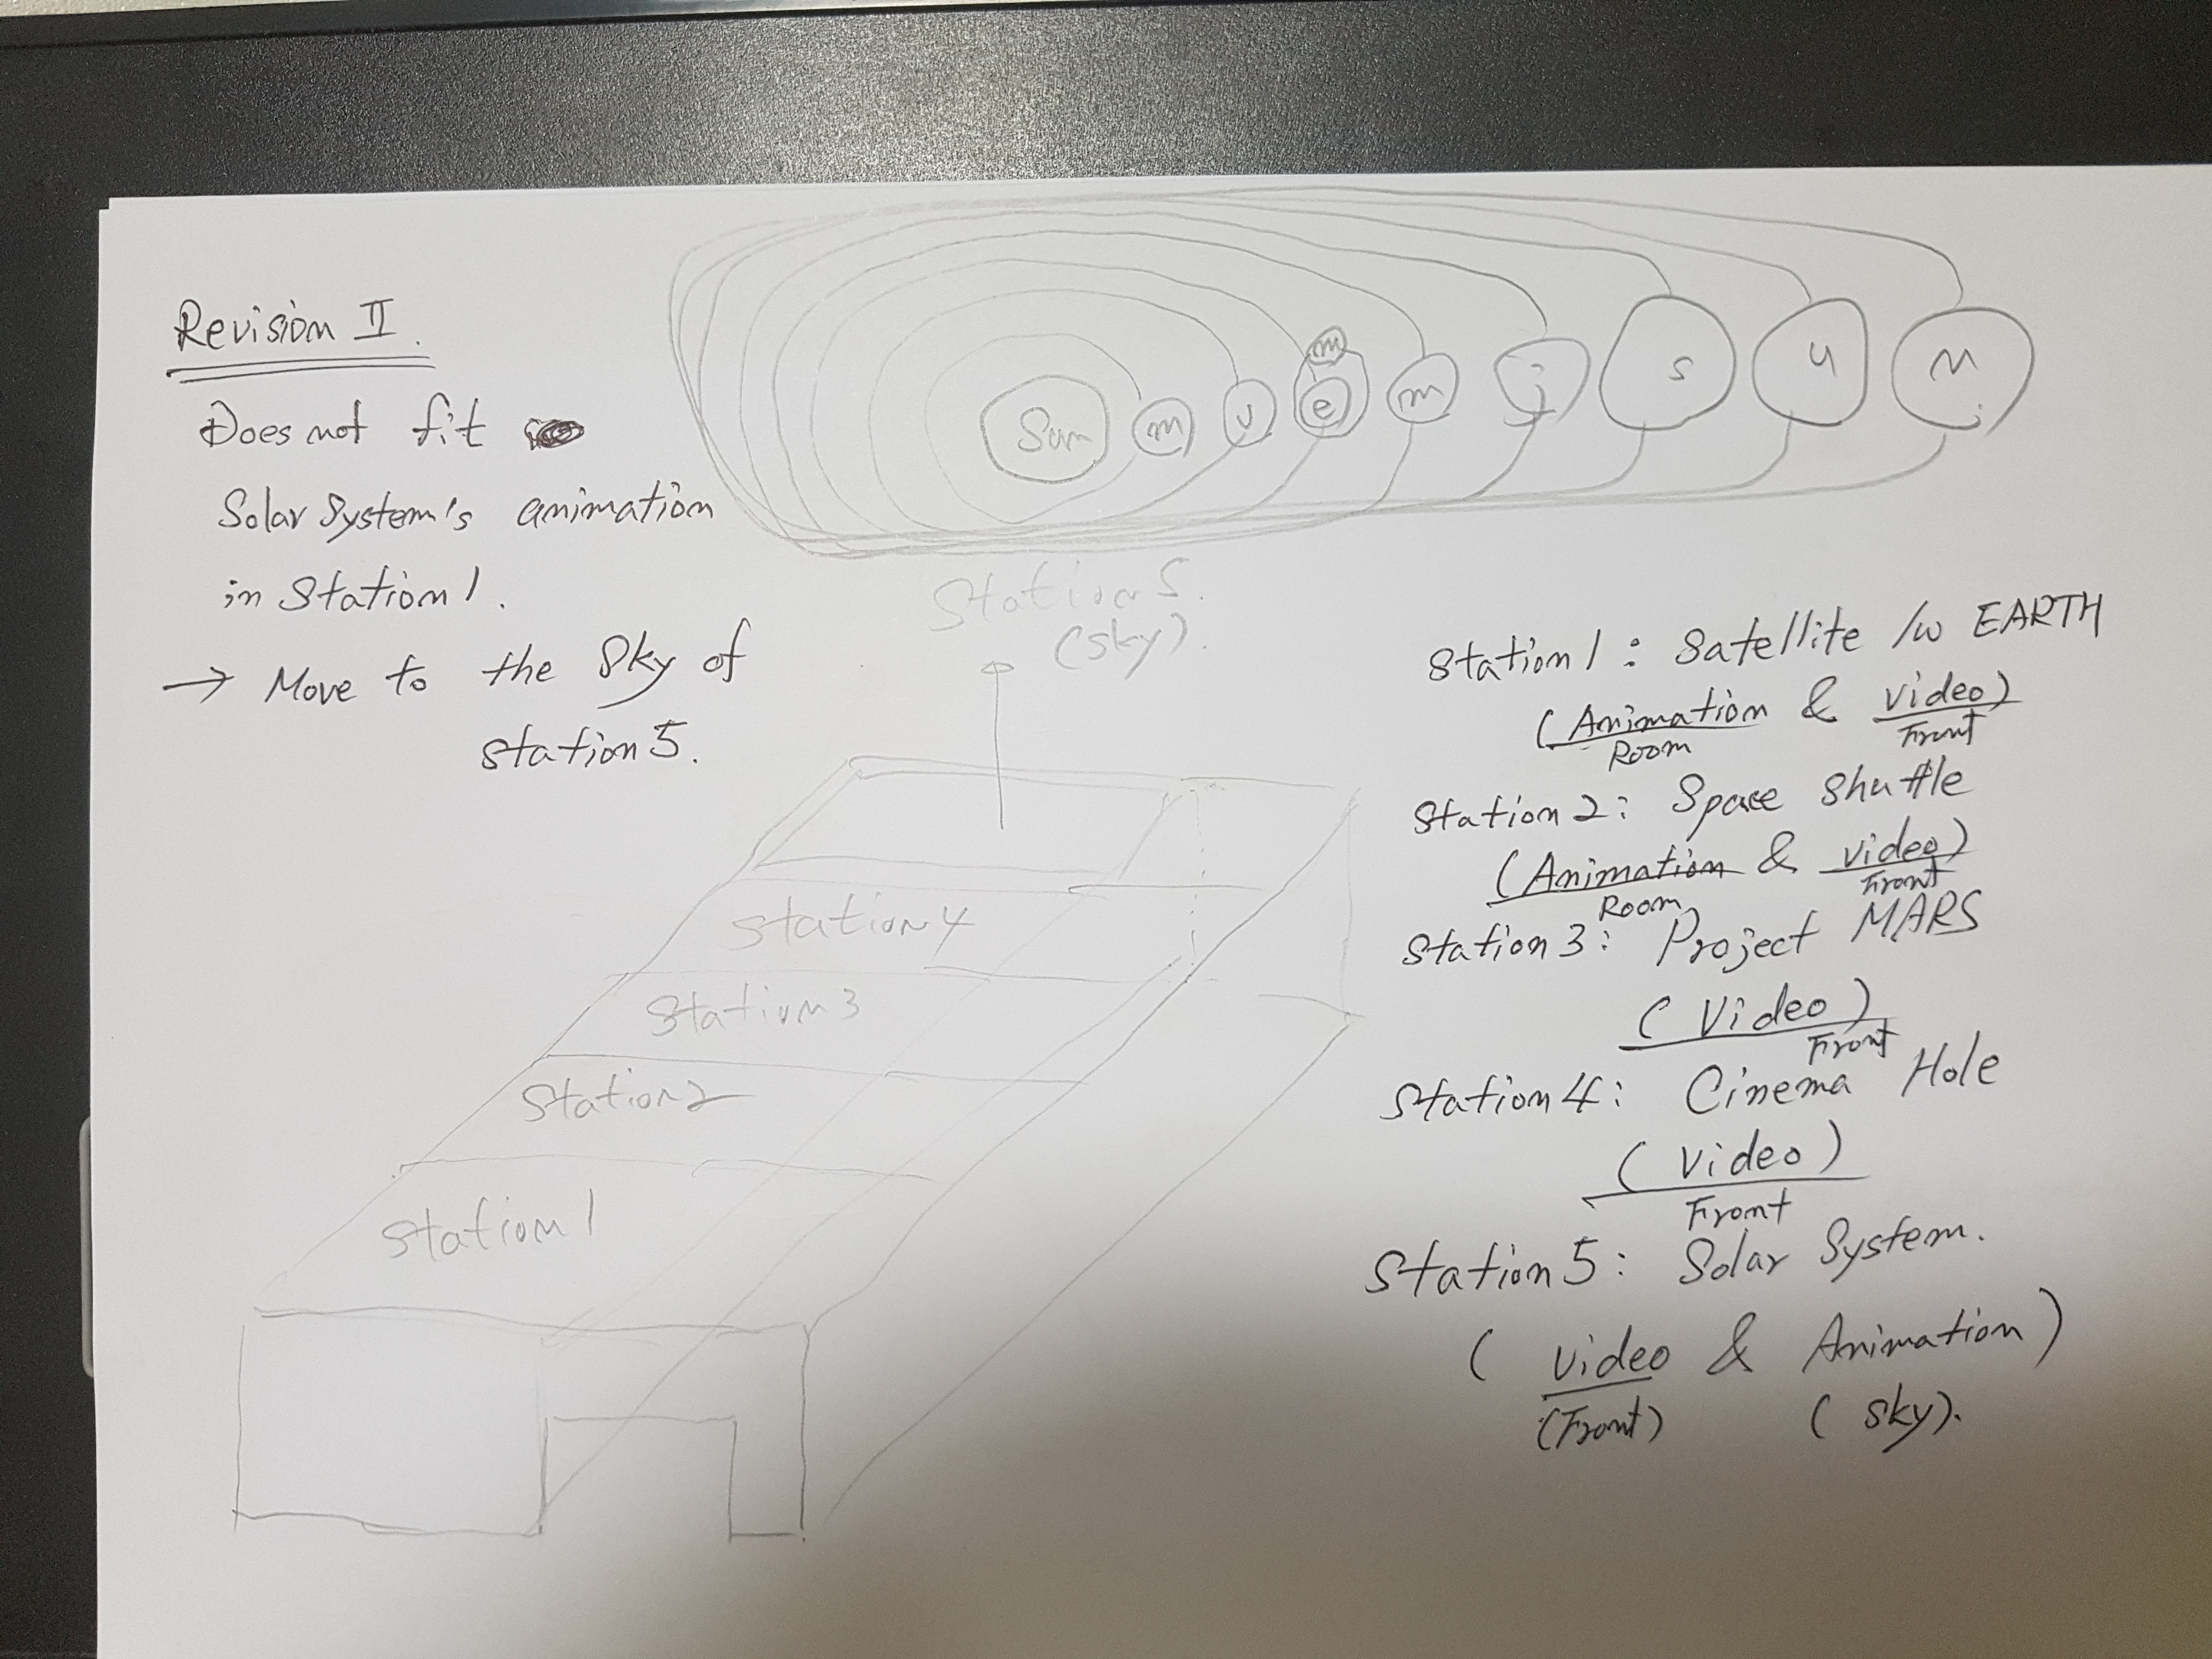 Revision II.
Does not fit
Solar System's animation
in Station 1.
→ Move to the Sky of
station 5.
Sun m v e m m j s u n
Station 5.
(sky).
Station 4
Station 3
Station 2
Station 1
Station 1 : Satellite /w EARTH
(Animation & video)
Room Front
Station 2 : Space Shuttle
(Animation & video)
Room Front
Station 3 : Project MARS
(Video)
Front
Station 4 : Cinema Hole
(Video)
Front
Station 5 : Solar System.
( Video & Animation )
(Front) ( sky).